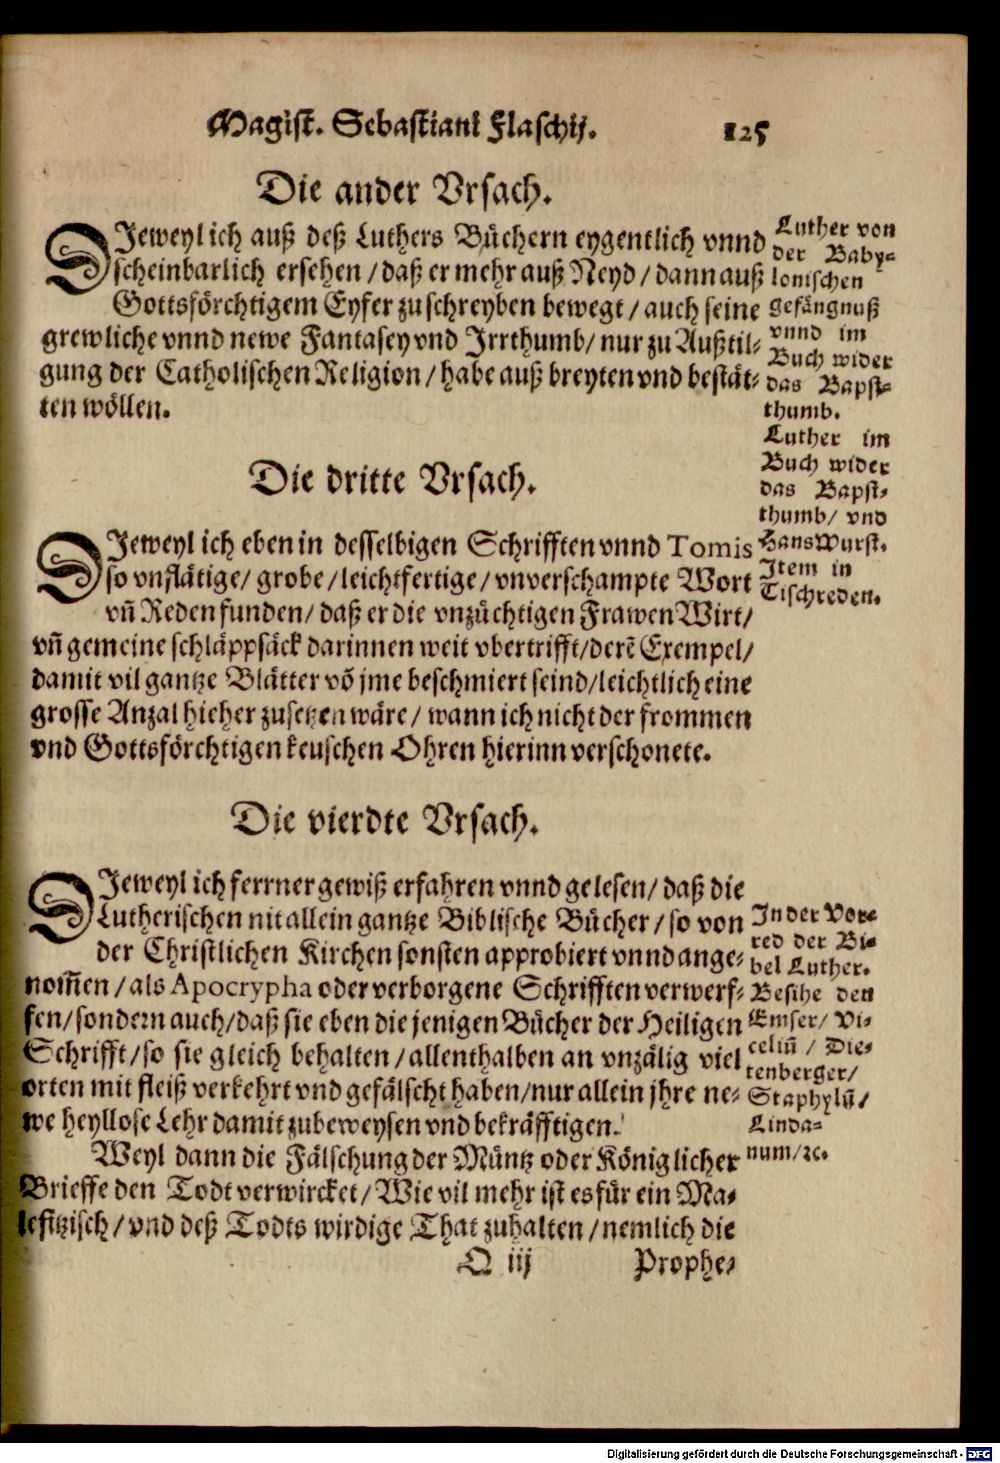 Magist. Sebastiani Flaschij. 125
Die ander Vrsach.
DJeweyl ich auß deß Luthers Büchern eygentlich vnnd
scheinbarlich ersehen / daß er mehr auß Neyd / dann auß
Gottsförchtigem Eyfer zu schreyben bewegt / auch seine
grewliche vnnd newe Fantasey vnd Jrrthumb / nur zu Außtil-
gung der Catholischen Religion / habe auß breyten vnd bestät-
ten wöllen.
Luther von
der Baby-
lonischen
gefängnuß
vnnd im
Buch wider
das Bapst-
thumb.
Die dritte Vrsach.
DJeweyl ich eben in desselbigen Schrifften vnnd Tomis
so vnflätige / grobe / leichtfertige / vnverschampte Wort
vñ Reden funden / daß er die vnzüchtigen Frawen Wirt /
vñ gemeine schläppsäck darinnen weit vbertrifft / derẽ Exempel /
damit vil gantze Blätter võ jme beschmiert seind / leichtlich eine
grosse Anzal hieher zusetzen wäre / wann ich nicht der frommen
vnd Gottsförchtigen keuschen Ohren hierinn verschonete.
Luther im
Buch wider
das Bapst-
thumb / vnd
Hans Wurst.
Jtem in
Tischreden.
Die vierdte Vrsach.
DJeweyl ich ferrner gewiß erfahren vnnd gelesen / daß die
Lutherischen nit allein gantze Biblische Bücher / so von
der Christlichen Kirchen sonsten approbiert vnnd ange-
nom̃en / als Apocrypha oder verborgene Schrifften verwerf-
fen / sondern auch / daß sie eben die jenigen Bücher der Heiligen
Schrifft / so sie gleich behalten / allenthalben an vnzälig viel
orten mit fleiß verkehrt vnd gefälscht haben / nur allein jhre ne-
we heyllose Lehr damit zubeweysen vnd bekräfftigen.
Jn der Vor-
red der Bi-
bel Luther.
Besihe den
Emser / Vi-
celiũ / Die-
tenberger /
Staphylũ /
Linda-
num / ꝛc.
Weyl dann die Fälschung der Müntz oder Königlicher
Brieffe den Todt verwircket / Wie vil mehr ist es für ein Ma-
lefitzisch / vnd deß Todts wirdige That zuhalten / nemlich die
Q iij Prophe-
Digitalisierung gefördert durch die Deutsche Forschungsgemeinschaft - DFG